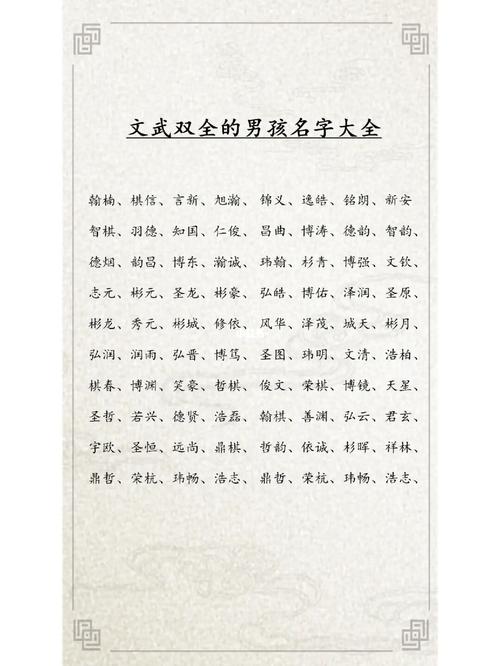 文武双全的男孩名字大全
翰楠、棋信、言新、旭瀚、锦义、逸皓、铭朗、新安
智棋、羽德、知国、仁俊、昌曲、博涛、德韵、智韵、
德烟、韵昌、博东、瀚诚、玮翰、杉青、博强、文钦、
志元、彬元、圣龙、彬豪、弘皓、博佑、泽润、圣原、
彬龙、秀元、彬城、修依、风华、泽茂、城天、彬月、
弘润、润雨、弘晋、博笃、圣图、玮明、文清、浩柏、
棋春、博渊、笑豪、哲棋、俊文、荣棋、博镜、天星、
圣哲、若兴、德贤、浩磊、翰棋、善渊、弘云、君玄、
宇欧、圣恒、远尚、鼎棋、哲韵、依诚、杉晖、祥林、
鼎哲、荣杭、玮畅、浩志、鼎哲、荣杭、玮畅、浩志、